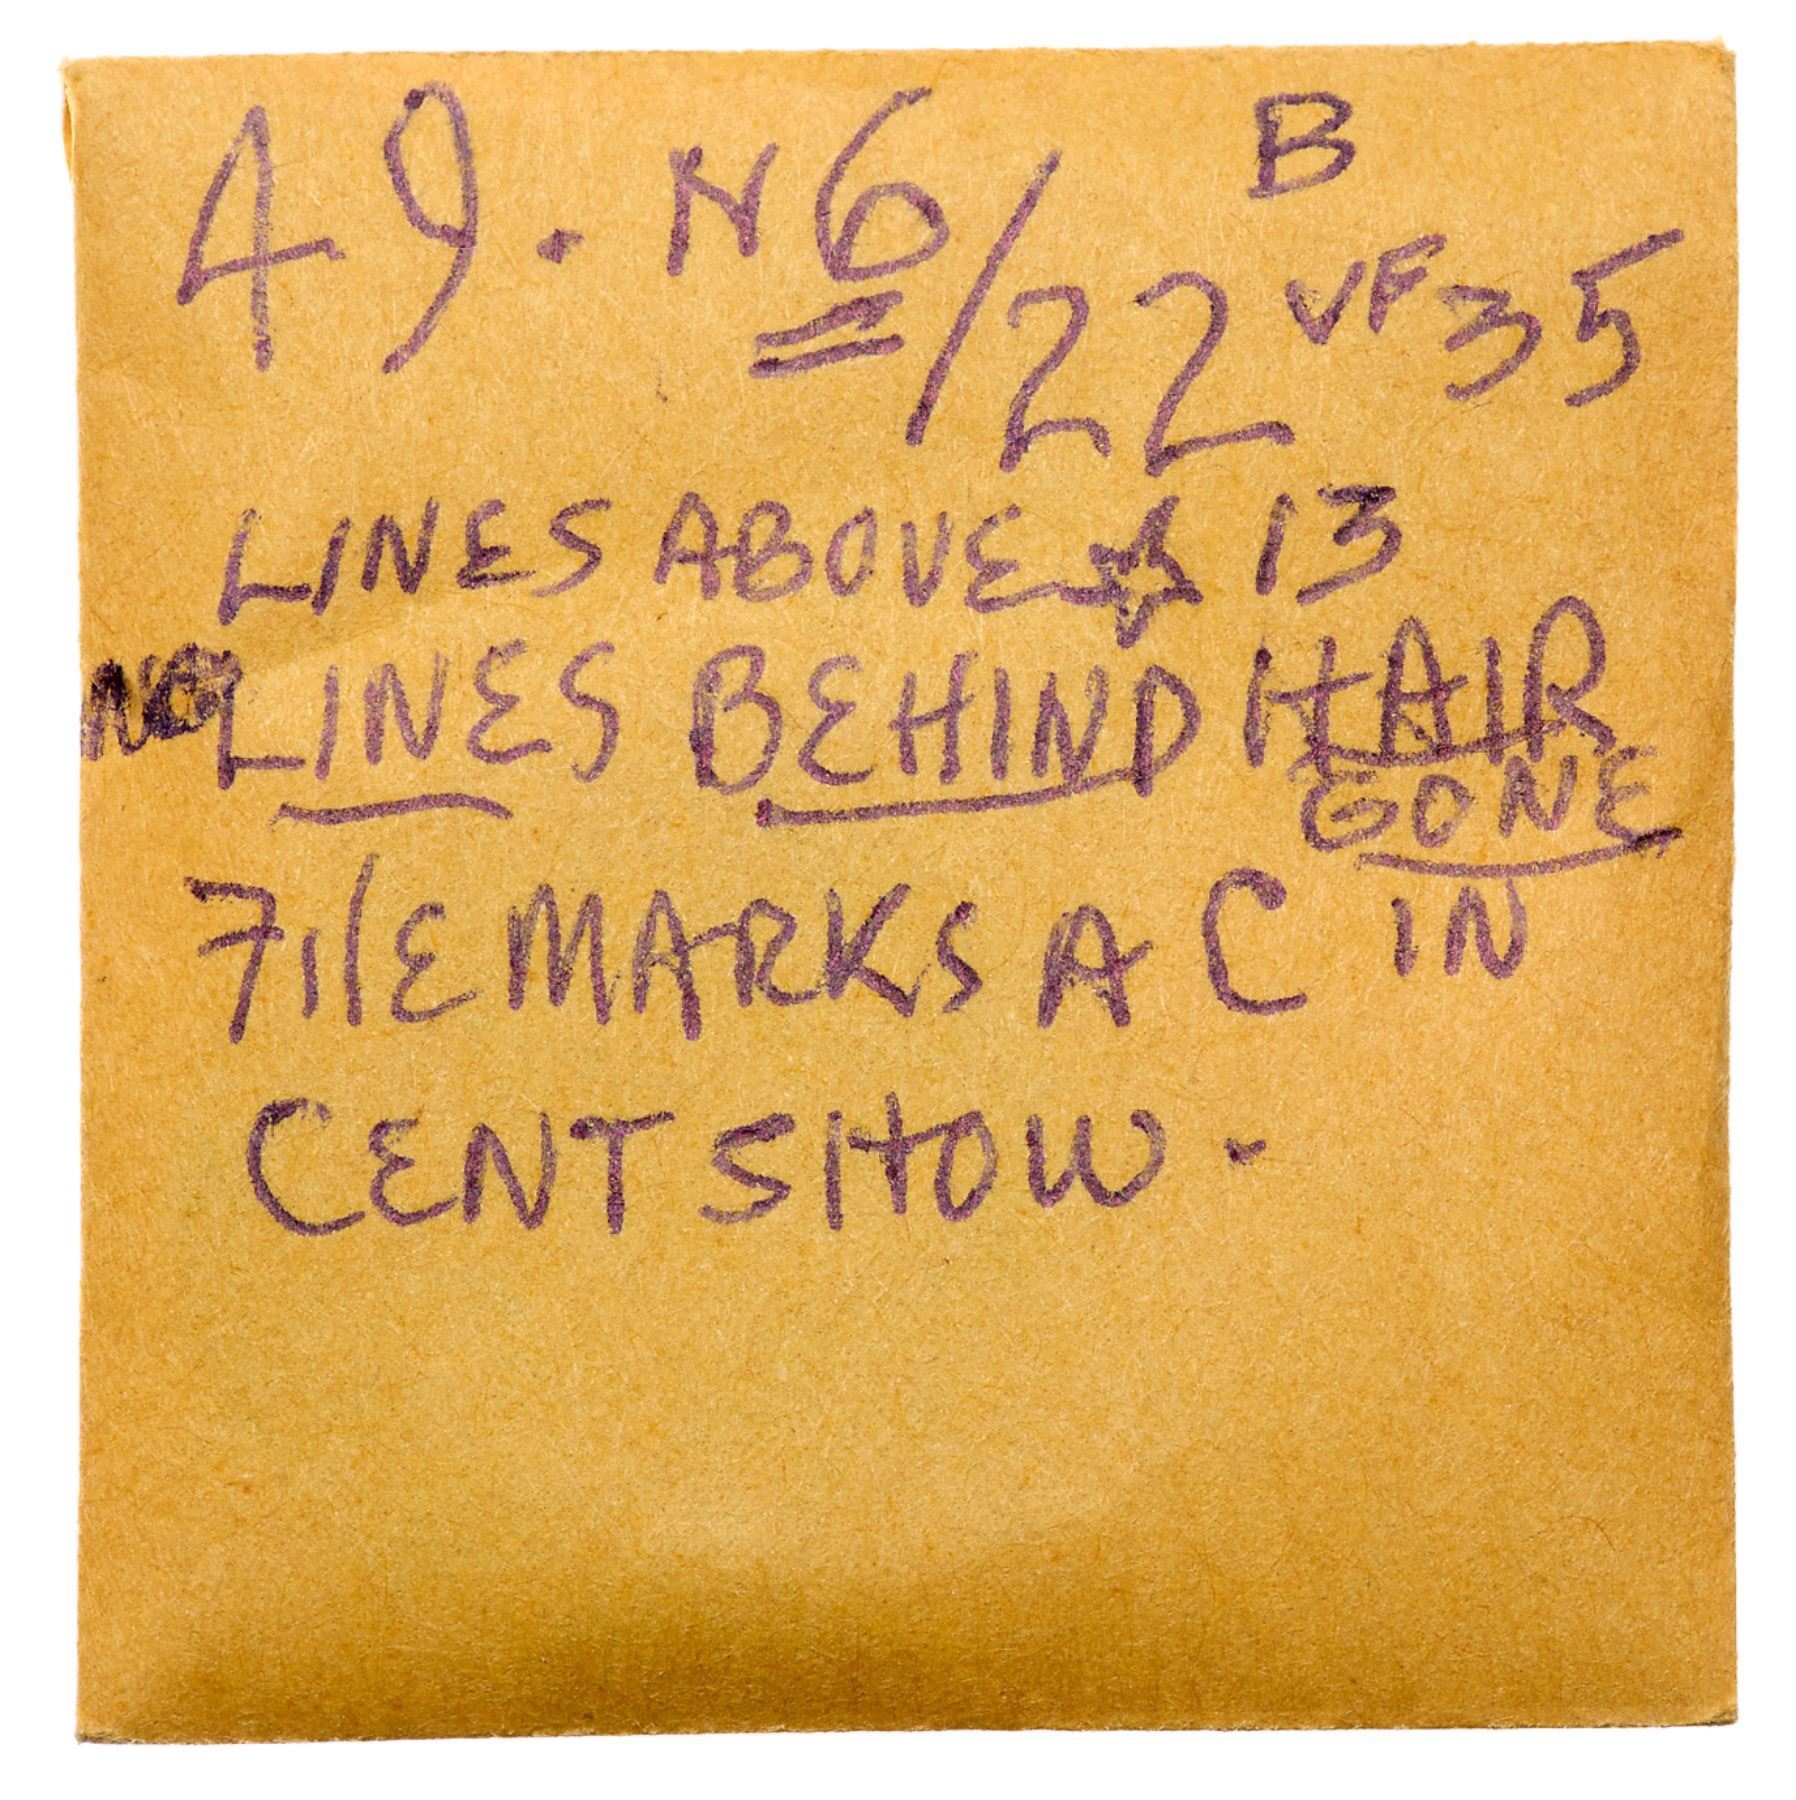 49. N6/22 B VF35
LINES ABOVE ☆ 13
NO LINES BEHIND HAIR
GONE
FILE MARKS A C IN
CENT SHOW.